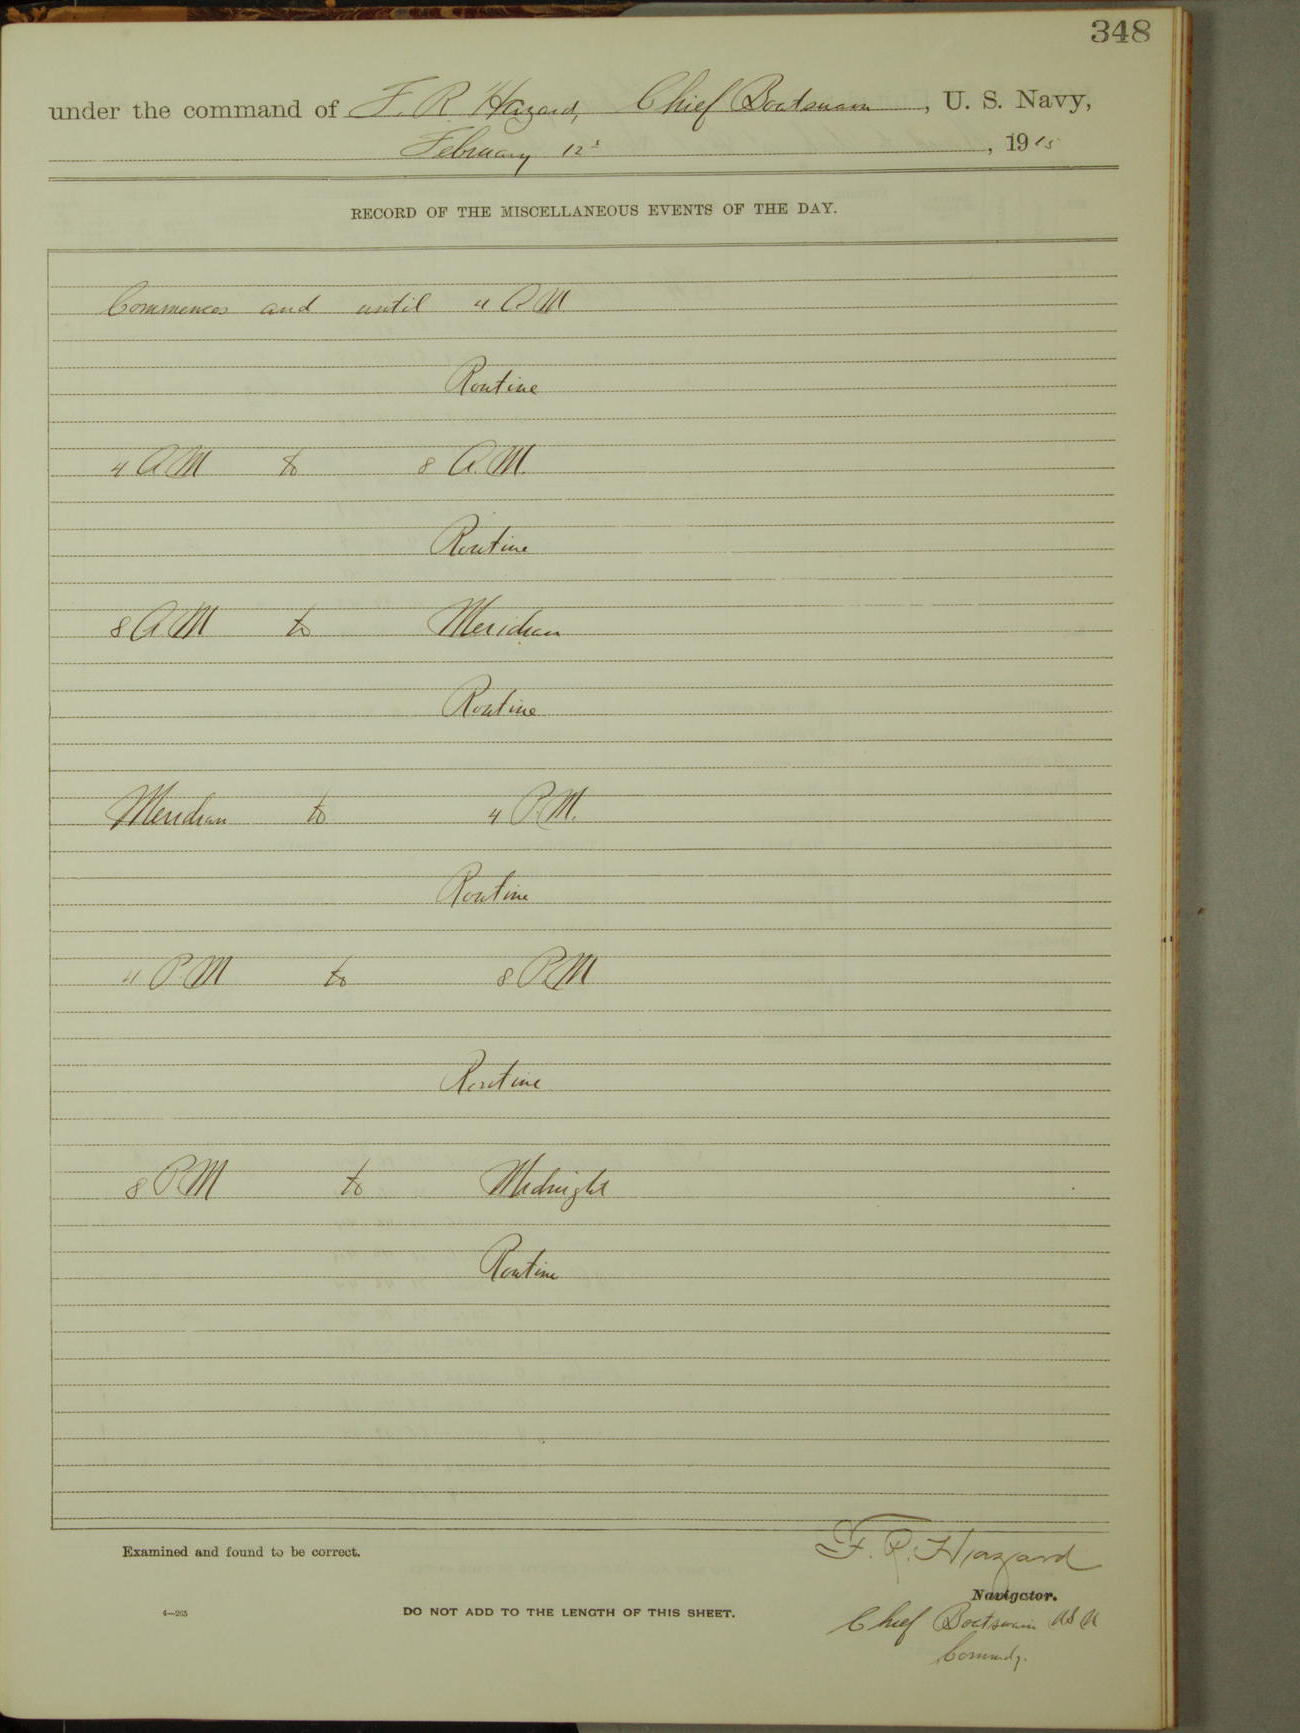 348
under the command of F. R. Hazard, Chief Boatswain, U. S. Navy,
February 12, 1915
RECORD OF THE MISCELLANEOUS EVENTS OF THE DAY.
Commences and until 4 A M
Routine
4 A M to 8 A. M.
Routine
8 A M to Meridian
Routine
Meridian to 4 P. M.
Routine
4 P. M to 8 P. M
Routine
8 P. M to Midnight
Routine
F. R. Hazard
Examined and found to be correct.
Navigator.
4—265
DO NOT ADD TO THE LENGTH OF THIS SHEET.
Chief Boatswain U S N
Commdg.